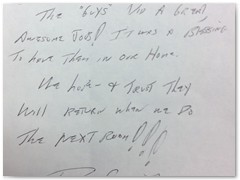 The "Guys" Did A Great
Awesome Job! It was a Blessing
To have them in our Home.
We hope & Trust They
Will Return when we Do
The Next Room!!!